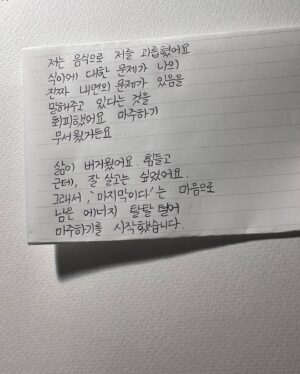 저는 음식으로 저를 괴롭혔어요
식이에 대한 문제가 나의
진짜 내면의 문제가 있음을
말해주고 있다는 것을
회피했어요. 마주하기
무서웠거든요...
삶이 버거웠어요. 힘들고
근데, 잘 살고는 싶었어요.
그래서, '마지막이다'는 마음으로
남은 에너지 탈탈 털어
마주하기를 시작했습니다.